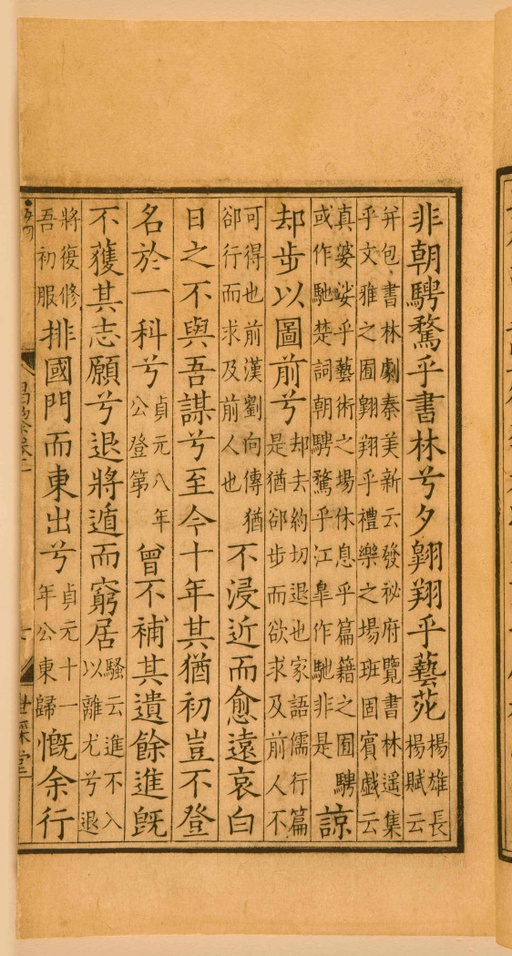 非朝騁騖乎書林兮夕翺翔乎藝苑楊雄長楊賦云
并包書林劇秦美新云發祕府覽書林遥集
乎文雅之囿翺翔乎禮樂之場班固賓戯云
真婆娑乎藝術之場休息乎篇籍之囿騁
或作馳楚詞朝騁騖乎江臯作馳非是諒
却步以圖前兮却去約切退也家語儒行篇是猶卻步而欲求及前人不
可得也前漢劉向傳猶卻行而求及前人也不浸近而愈遠哀白
日之不與吾謀兮至今十年其猶初豈不登
名於一科兮貞元八年公登第曾不補其遺餘進旣
不獲其志願兮退將遁而窮居騷云進不入以離尤兮退
將復修吾初服排國門而東出兮貞元十一年公東歸慨余行
世綵堂